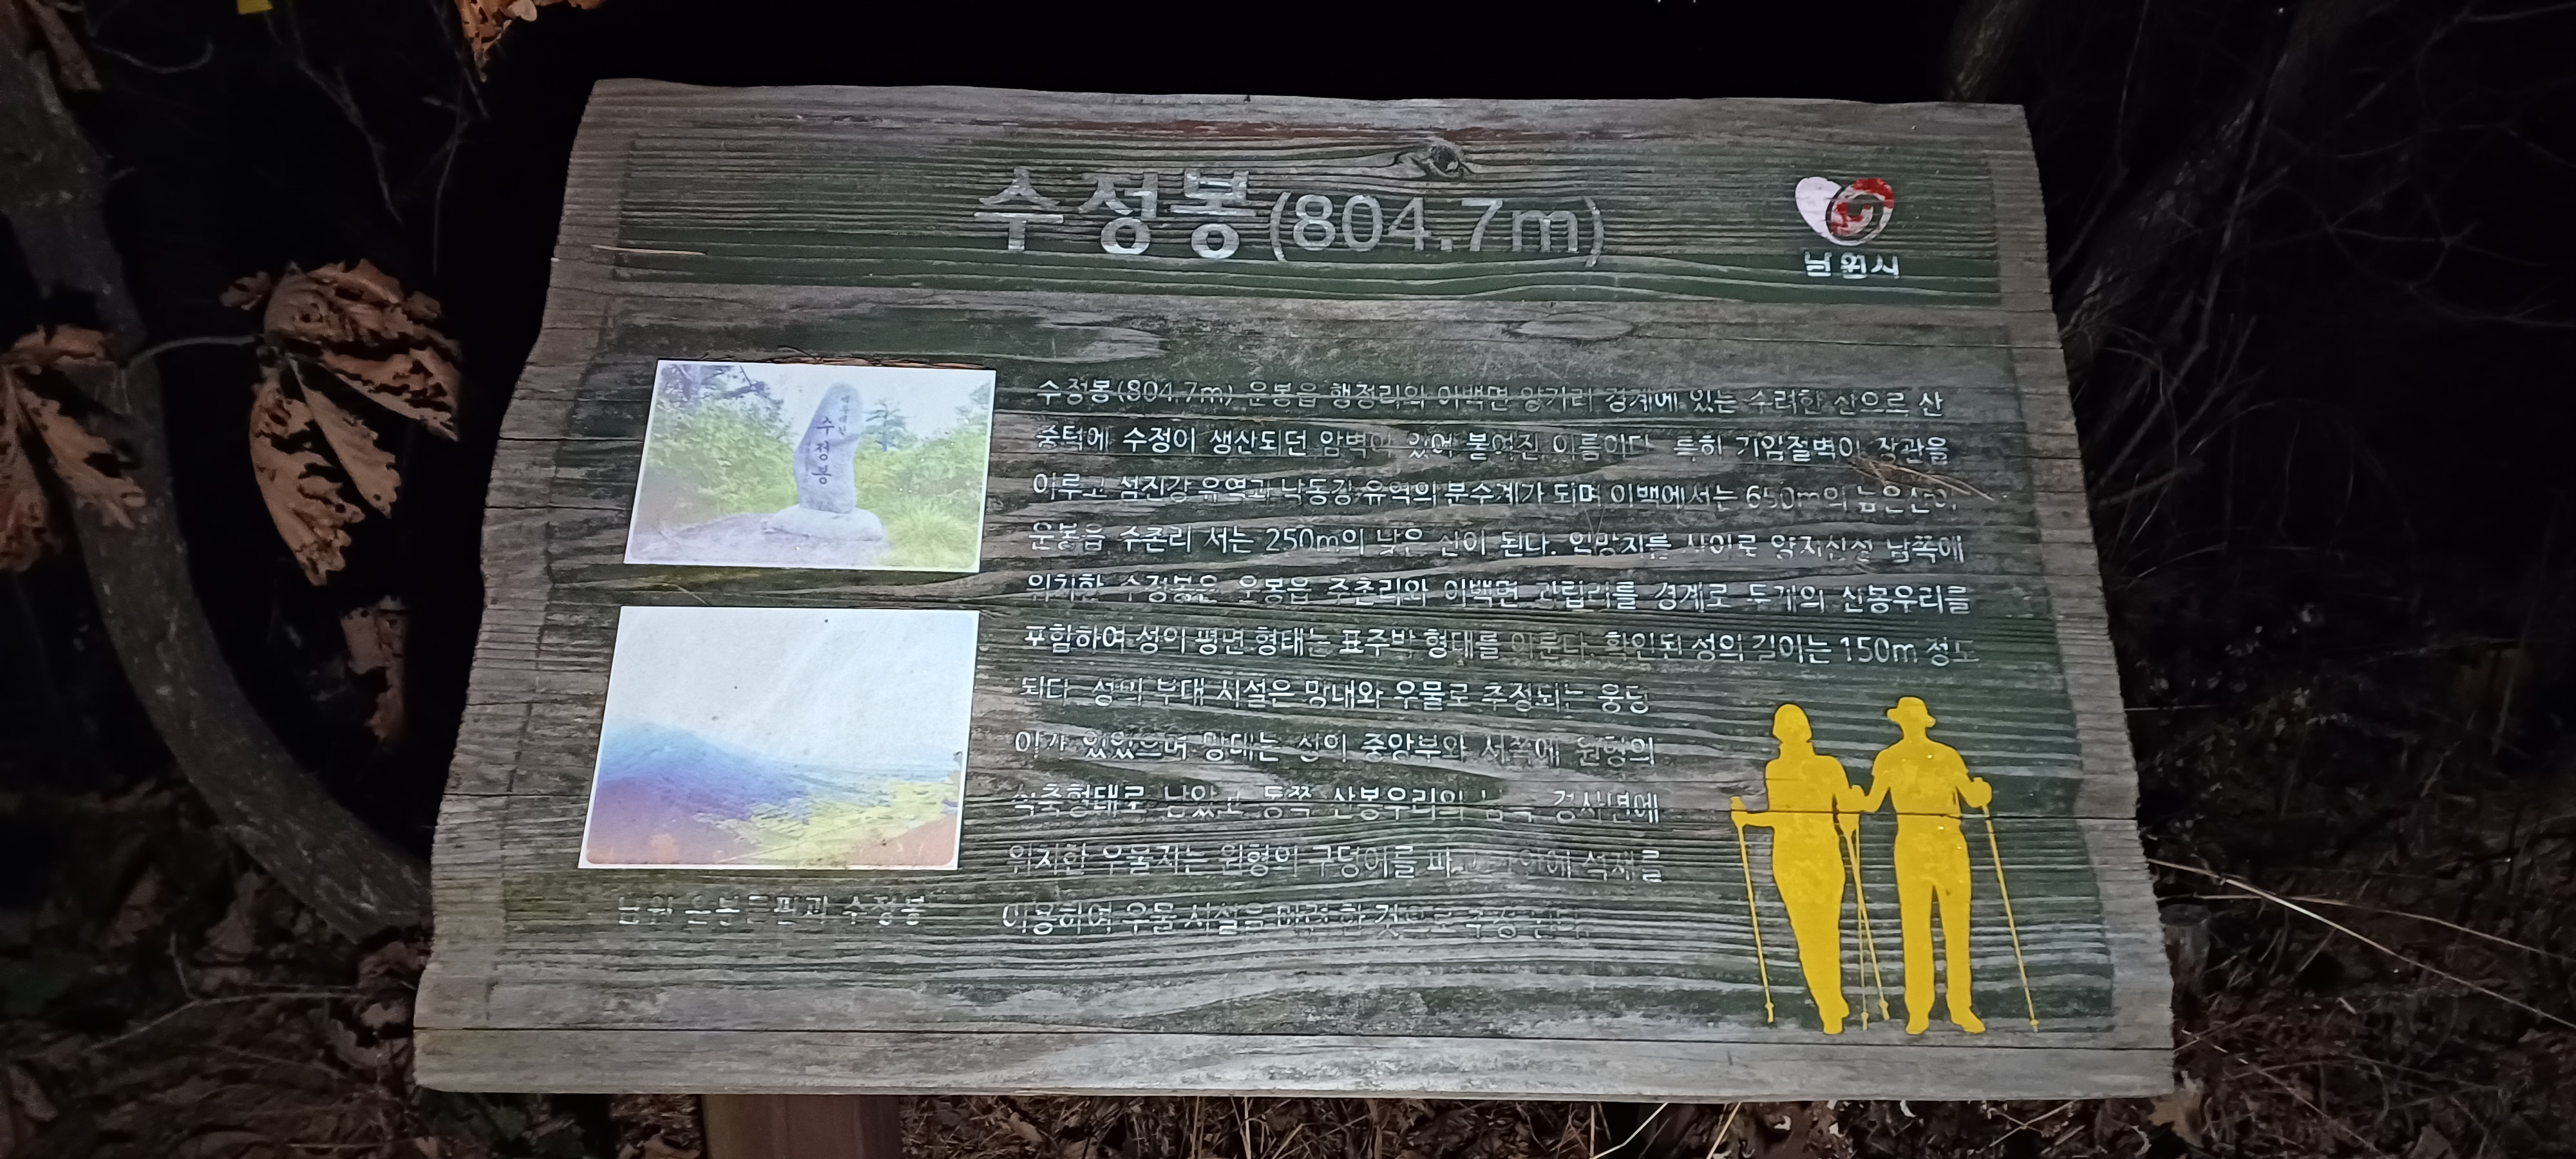 수정봉(804.7m)
남원시
수정봉(804.7m) 운봉읍 행정리와 이백면 양가리 경계에 있는 수려한 산으로 산
중턱에 수정이 생산되던 암벽이 있어 붙여진 이름이다. 특히 기암절벽이 장관을
이루고 섬진강 유역과 낙동강 유역의 분수계가 되며 이백에서는 650m의 높은산이
운봉읍 수촌리 서는 250m의 낮은 산이 된다. 사이로 남쪽에
위치한 수정봉은 운봉읍 주촌리와 이백면 경계로 두개의 산봉우리를
포함하여 성의 평면 형태는 표주박 형태를 이룬다. 확인된 성의 길이는 150m 정도
된다. 성의 부대 시설은 망대와 우물로 추정되는 웅덩
이가 있었으며 망대는 성의 중앙부와 서쪽에 원형의
석축형태로 남았고 동쪽 산봉우리의 남쪽 경사면에
위치한 우물지는 원형의 구덩이를 파고 석재를
이용하여 우물 시설을 한 것으로 추정된다.
수정봉
남원 운봉들판과 수정봉